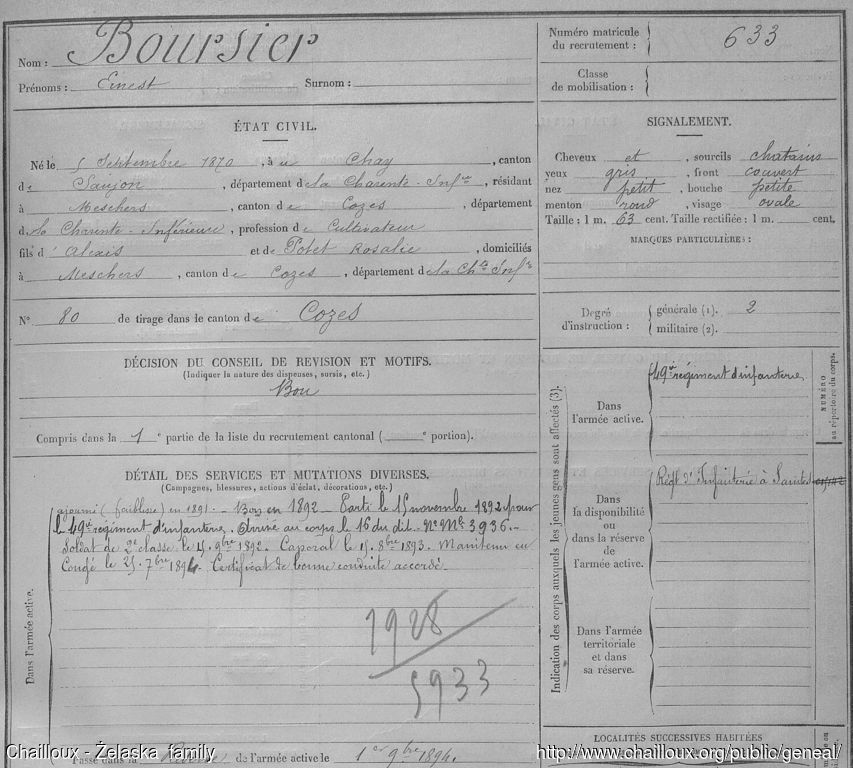 Nom : Boursier
Prénoms : Ernest Surnom :
Numéro matricule du recrutement : 633
Classe de mobilisation :
ÉTAT CIVIL.
Né le 5 Septembre 1870, à Chay, canton
de Saujon, département de la Charente-Infre, résidant
à Meschers, canton de Cozes, département
d la Charente-Inférieure, profession de Cultivateur
fils d' Alexis et de Potet Rosalie, domiciliés
à Meschers, canton de Cozes, département de la Chte Infre
N° 80 de tirage dans le canton de Cozes
SIGNALEMENT.
Cheveux et, sourcils chatains
yeux gris, front couvert
nez petit, bouche petite
menton rond, visage ovale
Taille : 1 m. 63 cent. Taille rectifiée : 1 m. cent.
MARQUES PARTICULIÈRES :
Degré d'instruction : générale (1). 2
militaire (2).
DÉCISION DU CONSEIL DE REVISION ET MOTIFS.
(Indiquer la nature des dispenses, sursis, etc.)
Bon
Compris dans la 1e partie de la liste du recrutement cantonal ( e portion).
DÉTAIL DES SERVICES ET MUTATIONS DIVERSES.
(Campagnes, blessures, actions d'éclat, décorations, etc.)
Dans l'armée active.
ajourné (faiblesse) en 1891 - Bon en 1892 - Parti le 15 novembre 1892 pour
le 49e régiment d'infanterie. Arrivé au corps le 16 du dit - No Mle 3936.-
Soldat de 2e classe le 15 9bre 1892. Caporal le 15 8bre 1893. Maintenu en
Congé le 25 7bre 1894. Certificat de bonne conduite accordé.
1928
5933
Passé dans la Réserve de l'armée active le 1er 9bre 1894.
Indication des corps auxquels les jeunes gens sont affectés (3).
NUMÉRO au répertoire du corps.
Dans l'armée active.
49e régiment d'infanterie
Dans la disponibilité ou dans la réserve de l'armée active.
Régt d'Infanterie à Saintes
Dans l'armée territoriale et dans sa réserve.
LOCALITÉS SUCCESSIVES HABITÉES
Chailloux - Żelaska family
http://www.chailloux.org/public/geneal/